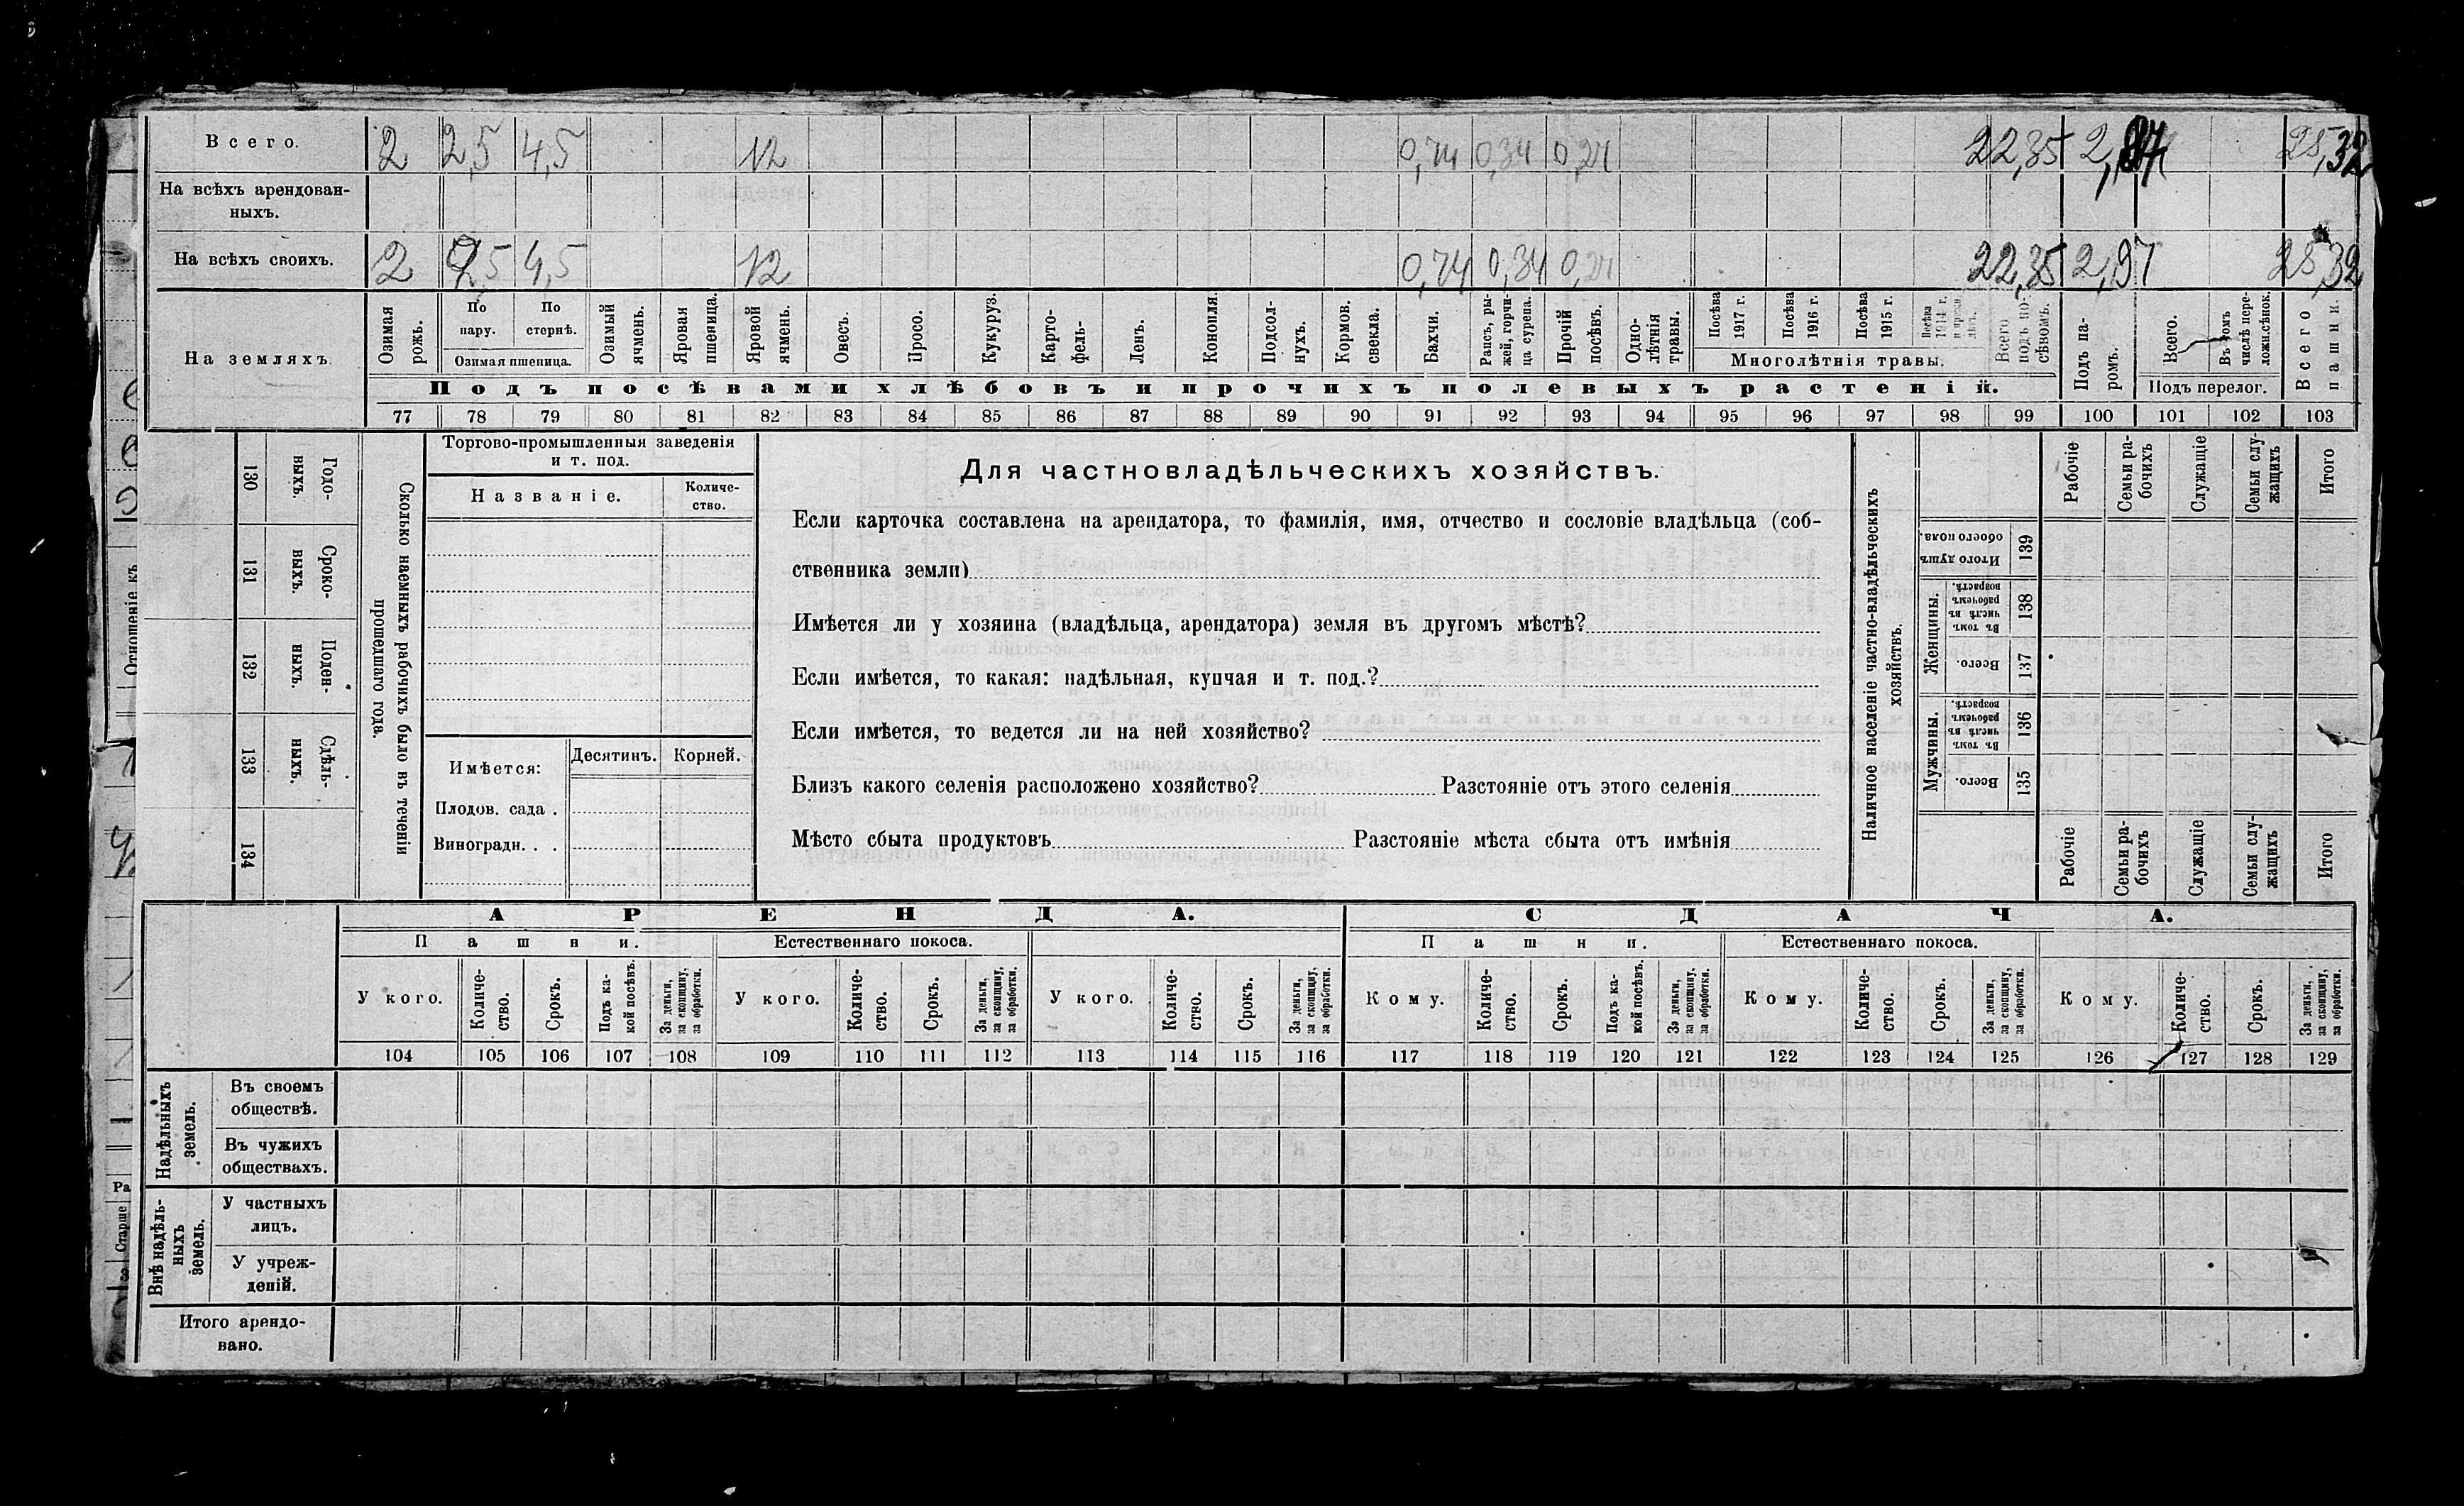 Всего. 2 2,5 4,5 12 0,74 0,34 0,24 22,35 25,32
На всѣхъ арендован-
ныхъ.
На всѣхъ своихъ. 2 2,5 4,5 12 0,74 0,34 0,24 22,35 2,97 25,32
На земляхъ.
Озимая рожь.
По пару.
По стернѣ.
Озимая пшеница.
Озимый ячмень.
Яровая пшеница.
Яровой ячмень.
Овесъ.
Просо.
Кукуруз.
Карто-
фель-
Ленъ.
Конопля.
Подсол-
нухъ.
Кормов.
свекла.
Бахчи.
Рапсъ, ры-
жей, горчи-
ца сурепа.
Прочій
посѣвъ.
Одно-
лѣтнія
травы.
Посѣва
1917 г.
Посѣва
1916 г.
Посѣва
1915 г.
Посѣва
1914 г.
Многолѣтнія травы.
Всего
подъ по-
сѣвомъ.
Подъ па-
ромъ.
Всего.
Въ томъ
числѣ пере-
ложн.сѣнок.
Подъ перелог.
Всего
пашни.
Подъ посѣвами хлѣбовъ и прочихъ полевыхъ растеній.
77 78 79 80 81 82 83 84 85 86 87 88 89 90 91 92 93 94 95 96 97 98 99 100 101 102 103
130 Годо-
выхъ.
131 Сроко-
выхъ.
132 Поден-
ныхъ.
133 Сдѣль-
ныхъ.
134
Сколько наемныхъ рабочихъ было въ теченіи
прошедшаго года.
Торгово-промышленныя заведенія
и т. под.
Названіе.
Количе-
ство.
Имѣется:
Десятинъ. Корней.
Плодов. сада .
Виноградн. . .
Для частновладѣльческихъ хозяйствъ.
Если карточка составлена на арендатора, то фамилія, имя, отчество и сословіе владѣльца (соб-
ственника земли)
Имѣется ли у хозяина (владѣльца, арендатора) земля въ другомъ мѣстѣ?
Если имѣется, то какая: надѣльная, купчая и т. под.?
Если имѣется, то ведется ли на ней хозяйство?
Близъ какого селенія расположено хозяйство? Разстояніе отъ этого селенія
Мѣсто сбыта продуктовъ Разстояніе мѣста сбыта отъ имѣнія
Наличное населеніе частно-владѣльческихъ
хозяйствъ.
Рабочіе
Семьи ра-
бочихъ
Служащіе
Семьи слу-
жащихъ
Итого
Итого душъ
обоего пола.
139
Женщины.
Въ томъ
числѣ въ
рабочемъ
возрастѣ.
138
Всего.
137
Мужчины.
Въ томъ
числѣ въ
рабочемъ
возрастѣ.
136
Всего.
135
Рабочіе
Семьи ра-
бочихъ
Служащіе
Семьи слу-
жащихъ
Итого
АРЕНДА. СДАЧА.
Пашни. Естественнаго покоса. Пашни. Естественнаго покоса.
У кого.
Количе-
ство.
Срокъ.
Подъ ка-
кой посѣвъ.
За деньги,
за скопщину,
за обработки.
У кого.
Количе-
ство.
Срокъ.
За деньги,
за скопщину,
за обработки.
У кого.
Количе-
ство.
Срокъ.
За деньги,
за скопщину,
за обработки.
Кому.
Количе-
ство.
Срокъ.
Подъ ка-
кой посѣвъ.
За деньги,
за скопщину,
за обработки.
Кому.
Количе-
ство.
Срокъ.
За деньги,
за скопщину,
за обработки.
Кому.
Количе-
ство.
Срокъ.
За деньги,
за скопщину,
за обработки.
104 105 106 107 108 109 110 111 112 113 114 115 116 117 118 119 120 121 122 123 124 125 126 127 128 129
Надѣльныхъ
земель.
Въ своемъ
обществѣ.
Въ чужихъ
обществахъ.
Внѣ надѣль-
ныхъ
земель.
У частныхъ
лицъ.
У учреж-
деній.
Итого арендо-
вано.
Отношеніе къ
Ра
Старше